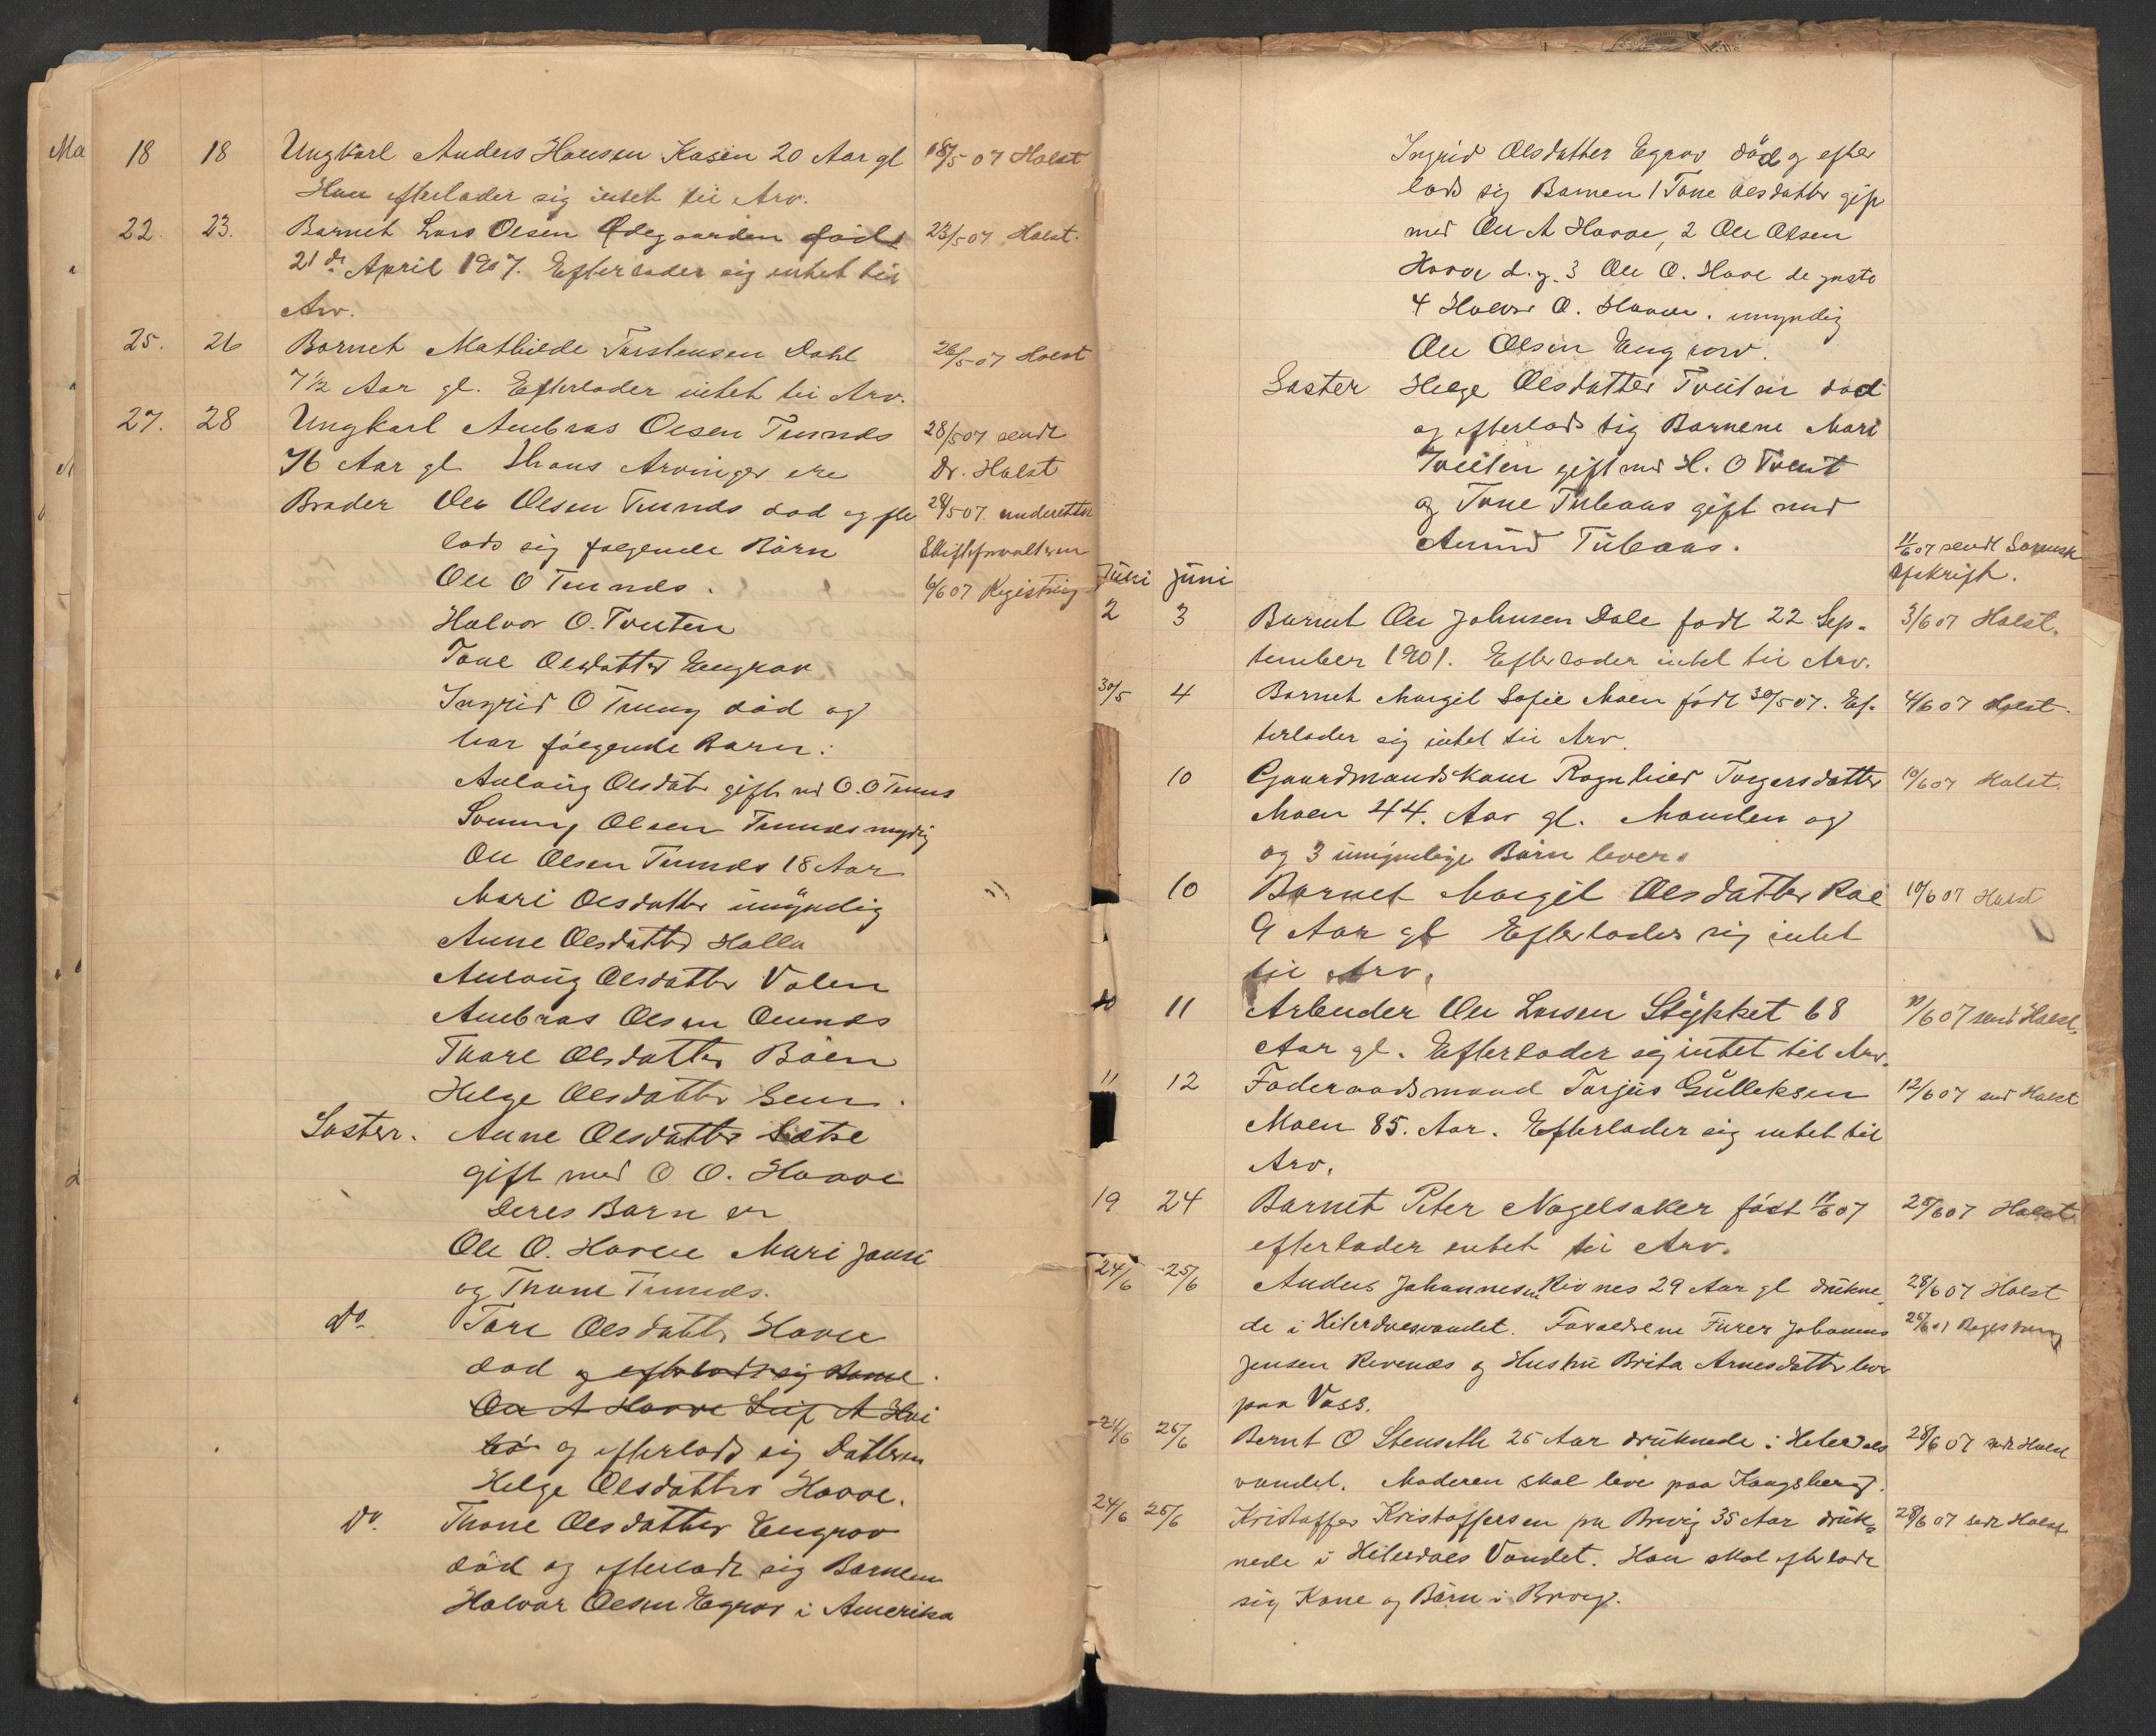 Ma 18 18 Ungkarl Anders Hansen Kasin 20 Aar gl 18/5 07 Holst
Han efterlader sig intet til Arv.
22. 23. Barnet Lars Olsen Ødegaarden født 23/5 07 Holst.
21de April 1907. Efterlader sig intet til
Arv.
25. 26 Barnet Mathilde Torstensen Dahl 26/5 07 Holst
7 1/2 Aar gl. Efterlader intet til Arv.
27. 28 Ungkarl Ambros Olsen 28/5 07 sendt
76 Aar gl. Hans Arvinger ere Dr. Holst
Broder Ole Olsen død og efter 28/5 07 underrettet
lods sig følgende Børn Skifteforvalteren
Ole O 6/6 07 Registrering
Halvor O. Tveiten
Tone Olsdatter Engrav
Ingrid O død og
har følgende Barn:
Anlaug Olsdatr gift md O. O
Olsen myndig
Ole Olsen 18 Aar
Mari Olsdatter umyndig
Anne Olsdatter Holla
Anlaug Olsdatter Valen
Ambros Olsen
Thore Olsdatter Bøen
Helge Olsdatter
Søster. Anne Olsdatter
gift med O O. Hoave
Deres Barn er
Ole O. Hovee Mari
og Thone
Do Tore Olsdatter Hovee
død og efterlods sig
Ole A Hoave A
og efterlods sig Datteren
Helge Olsdatter Hovoe.
Do Thone Olsdatter Engrav
død og efterlods sig Barnene
Halvor Olsen Egrav i Amerika
Ingrid Olsdatter Egrav død og efter
lods sig Barnen 1 Tone Olsdatter gift
med Ole A Hovoe, 2 Ole Olsen
Hovoe d.y. 3 Ole O. Hove de yngste
4 Halvor O. Hovoe. umyndig
Ole Olsen Engrav.
Søster Helge Olsdatter Tveiten død
og efterlods sig Barnene Mari
Tveiten gift med H. O Tveit
og Tone gift med
11/6 07 sendt Sorensk
Afskrift.
Juni Juni
2 3 Barnet Ole Johnsen Dale født 22 Sep- 3/6 07 Holst.
tember 1901. Efterlader intet til Arv.
30/5 4 Barnet Margit Sofie Moen født 30/5 07. Ef- 4/6 07 Holst.
terlader sig intet til Arv.
10 Gaardmandskone Ragnhild Torgersdatter 10/6 07 Holst.
Moen 44. Aar gl. Manden og
og 3 umyndige Børn lever.
10 Barnet Margit Olsdatter Roe 10/6 07 Holst
9 Aar gl Efterlader sig intet
til Arv.
10 11 Arbeider Ole Larsen Stykket 68 11/6 07 send Holst.
Aar gl. Efterlader sig intet til Arv.
11 12 Føderaadsmand Torjus Gulleksen 12/6 07 send Holst
Moen 85. Aar. Efterlader sig intet til
Arv.
19 24 Barnet Peter Nagelsaker født 11/6 07 25/6 07 Holst
efterlader intet til Arv.
24/6 25/6 Anders Johannesen Rivnes 29 Aar gl drukne- 28/6 07 Holst
de i Hiterdalsvandet. Forældrene Furer Johannes
Jensen Revenæs og Hustru Brita Arnesdatter lever
paa Voss.
24/6 25/6 Bernt O Stenseth 25 Aar druknede i Hiterdals 28/6 07 sendt Holst
vandet. Moderen skal leve paa Kongsberg.
24/6 25/6 Kristoffer Kristoffersen fra Brevig 35 Aar druk- 28/6 07 sendt Holst
nede i Hiterdals Vandet. Han skal efterlade
sig Kone og Børn i Brevig.